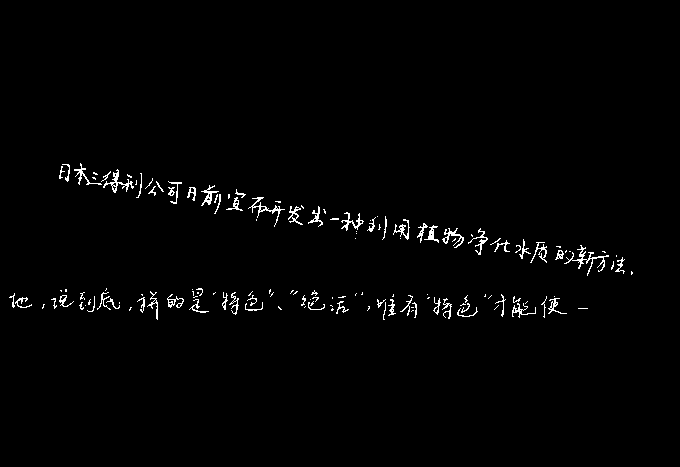 日本三得利公司日前宣布开发出一种利用植物净化水质的新方法.
地,说到底,拼的是“特色”、“绝活”,唯有“特色”才能使一